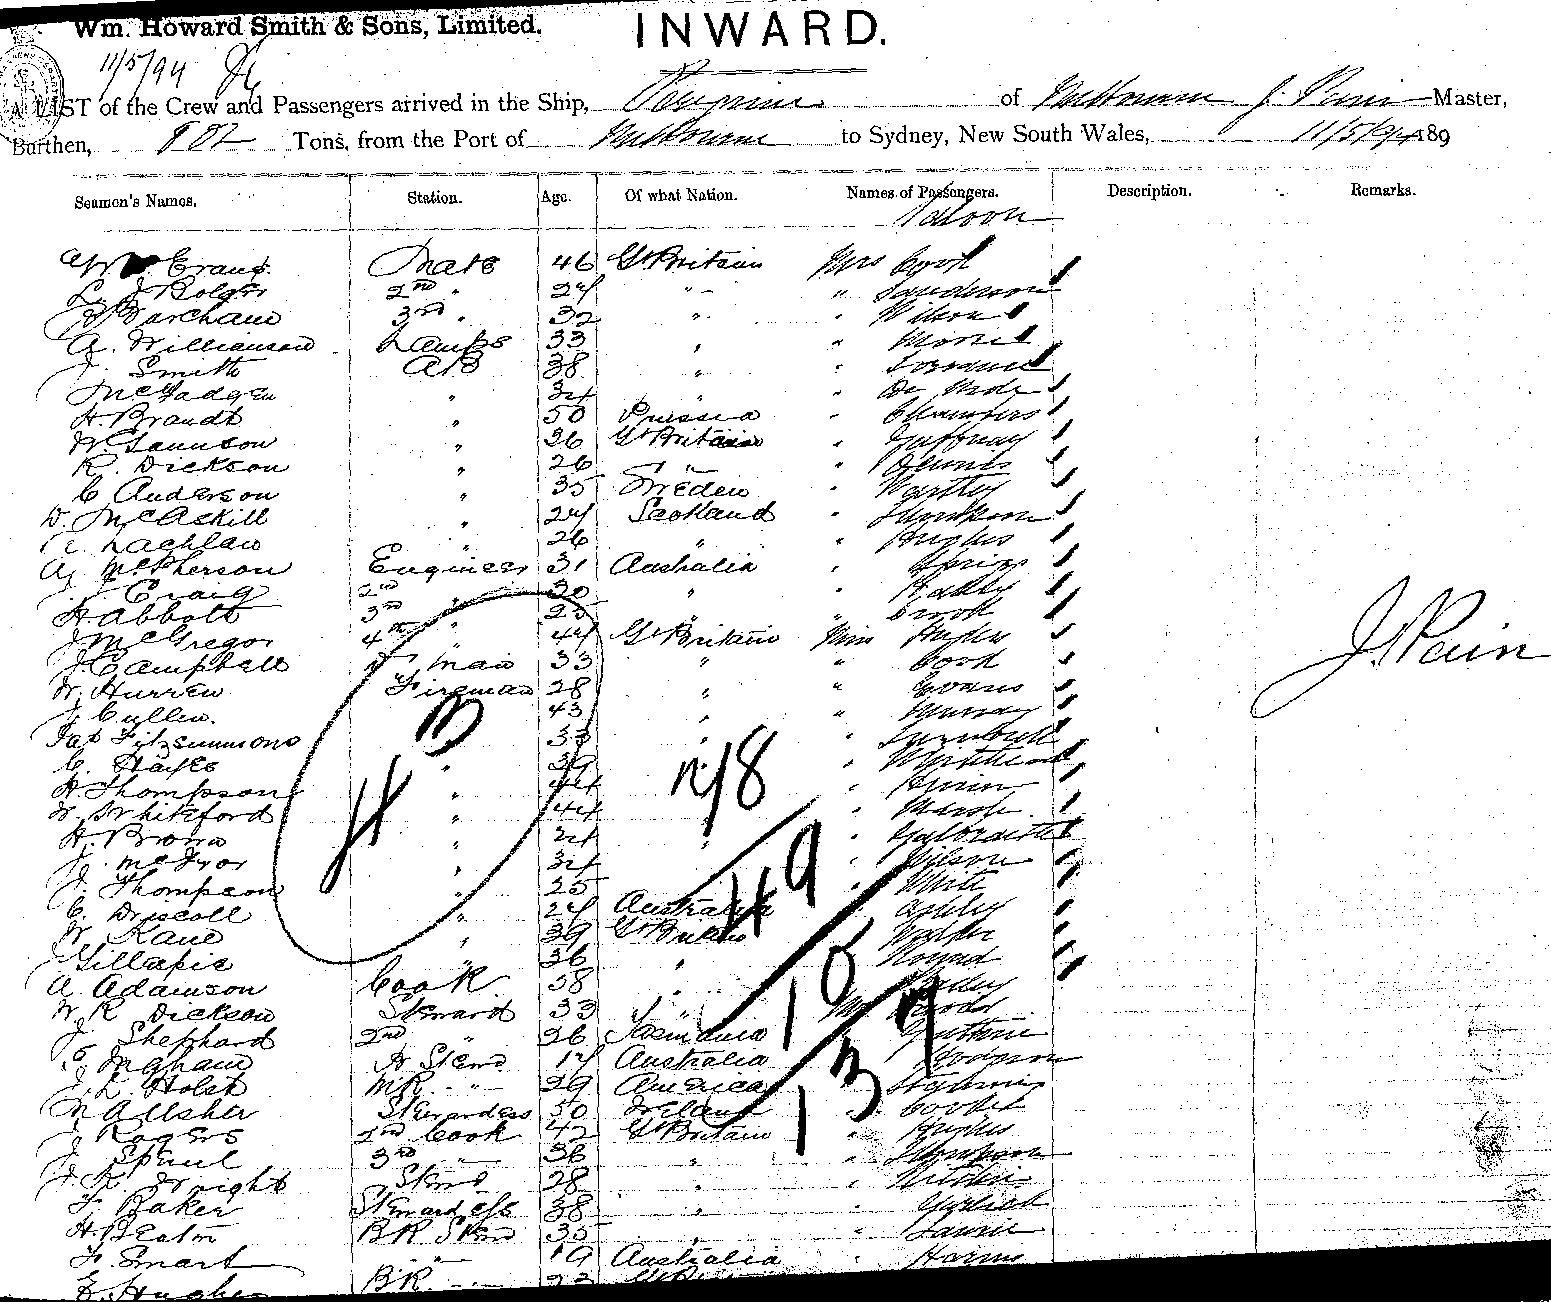 Wm. Howard Smith & Sons, Limited.
INWARD.
11/5/94
A LIST of the Crew and Passengers arrived in the Ship, Peregrine of Melbourne J. Pain Master,
Burthen, 882 Tons, from the Port of Melbourne to Sydney, New South Wales, 11/5/94 189
Seamen's Names. Station. Age. Of what Nation. Names of Passengers. Description. Remarks.
Saloon
Evans Mate 46 Gt Britain Mrs Cook
L. J. Bolger 2nd " 24 " " Sanderson
Marchant 3rd " 32 " " Wilson
A. Williamson Lamps 33 " "
J. Smith AB 38 " "
McFadgen " 34 " "
H. Brandt " 50 Prussia " Chambers
W. Saunson " 26 Gt Britain " Gaffney
R. Dickson " 26 " " Dennis
C Anderson " 35 Sweden "
D. McAskill " 24 Scotland " Thompson
Lachlan " 26 " " Hughes
A. McPherson Engineer 31 Australia "
J. Craig 2nd " 30 " "
H Abbott 3rd " 25 " " Crook
J McGregor 4th " 44 Gt Britain Miss Hughes
J. Campbell man 33 " " Cook
W. Hurren Fireman 28 " " Evans
J Cullen. 43 " " Murray
Jas Fitzsimmons 33 " " Turnbull
C. Hayes " 39 "
H Thompson " 44 "
W Whiteford " 44 " Marsh
H. Brown " 24 " " Galbraith
J. McIvor " 34 " Wilson
J. Thompson " 25 White
C. Driscoll " 24 Australia Ashley
W Kane " 39 Gt Britain Walker
Gillespie " 36 "
A. Adamson Cook 58 "
W R Dickson Steward 33 "
J Shephard 2nd " 26 Tasmania Guthrie
Ingham F Stewd 17 Australia
Holst MR " 29 America
M A Usher Stewardess 50 Ireland
J Rogers 2nd Cook 42 Gt Britain " Hughes
J Spaul 3rd " 36 " " Thompson
Wright Stewd 28 " "
F. Baker Stewardess 38 " "
H. Beaton BR Stewd 35 " " Laurie
F. Smart " 19 Australia " Harris
E. Hughes BR " 23
43
18
49
10
137
J. Pain